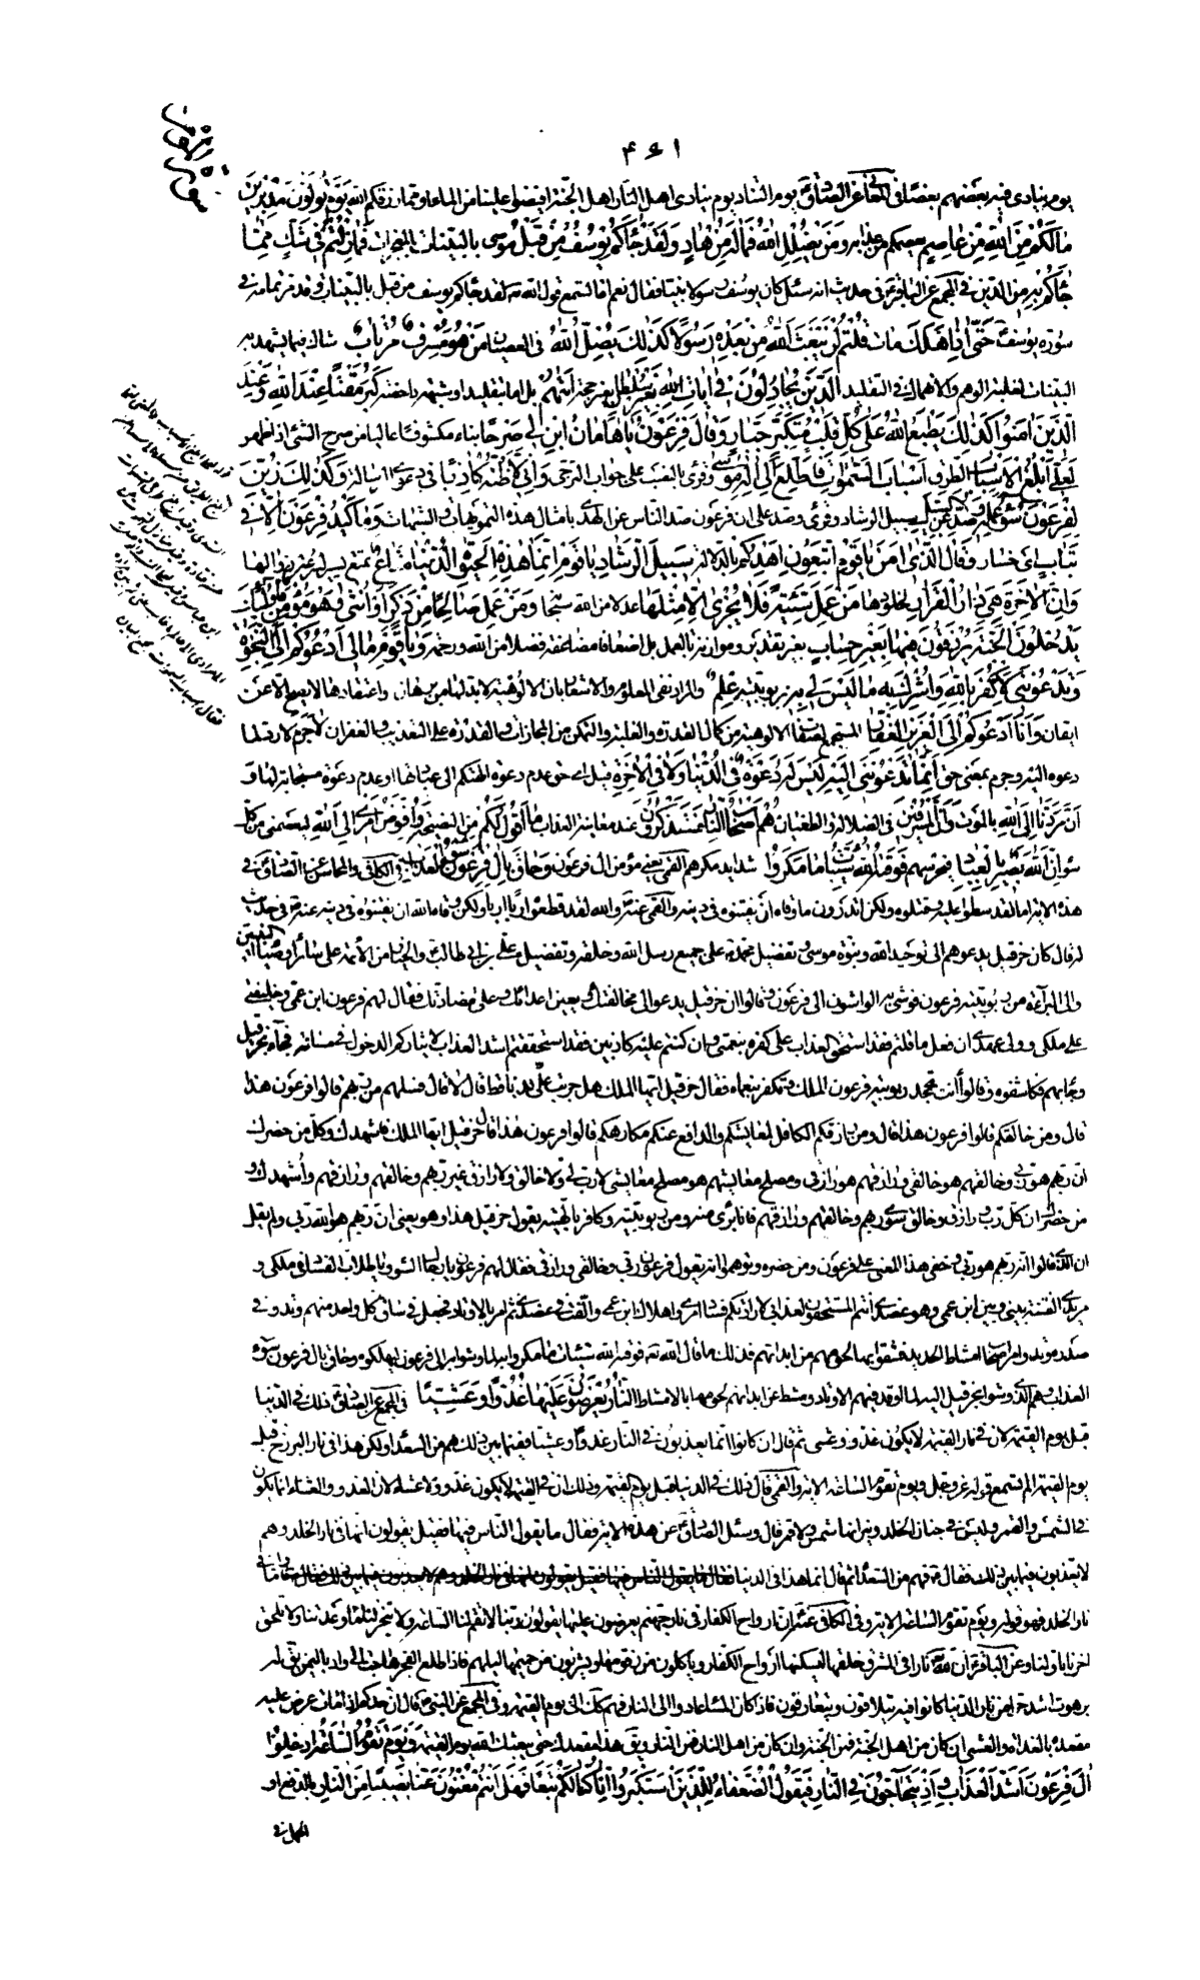 سورة المؤمن
٤٦١
يوم ينادي فيه بعضهم بعضا في المعاني عن الصادق يوم التناد يوم ينادي اهل النار اهل الجنة افيضوا علينا من الماء او مما رزقكم الله يَوْمَ تُوَلُّونَ مُدْبِرِينَ
مَا لَكُمْ مِنَ اللَّهِ مِنْ عَاصِمٍ يعصمكم من عذابه وَمَنْ يُضْلِلِ اللَّهُ فَمَا لَهُ مِنْ هَادٍ وَلَقَدْ جَاءَكُمْ يُوسُفُ مِنْ قَبْلُ موسى بِالْبَيِّنَاتِ بالمعجزات فَمَا زِلْتُمْ فِي شَكٍّ مِمَّا
جَاءَكُمْ بِهِ من الدين في المجمع عن الباقر في حديث انه سئل كان يوسف رسولا نبيا فقال نعم اما تسمع قول الله لقد جاءكم يوسف من قبل بالبينات وقد مر تمامه في
سورة يوسف حَتَّى إِذَا هَلَكَ مات قُلْتُمْ لَنْ يَبْعَثَ اللَّهُ مِنْ بَعْدِهِ رَسُولًا كَذَلِكَ يُضِلُّ اللَّهُ في العصيان مَنْ هُوَ مُسْرِفٌ مُرْتَابٌ شاك فيما يشهد به
البينات لغلبة الوهم والانهماك في التقليد الَّذِينَ يُجَادِلُونَ فِي آيَاتِ اللَّهِ بِغَيْرِ سُلْطَانٍ بغير حجة أَتَاهُمْ بل اما بتقليد او شبهة داحضة كَبُرَ مَقْتًا عِنْدَ اللَّهِ وَعِنْدَ
الَّذِينَ آمَنُوا كَذَلِكَ يَطْبَعُ اللَّهُ عَلَى كُلِّ قَلْبِ مُتَكَبِّرٍ جَبَّارٍ وَقَالَ فِرْعَوْنُ يَا هَامَانُ ابْنِ لِي صَرْحًا بناء مكشوفا عاليا من صرح الشئ اذا ظهر
لَعَلِّي أَبْلُغُ الْأَسْبَابَ الطرق أَسْبَابَ السَّمَوَاتِ فَأَطَّلِعَ إِلَى إِلَهِ مُوسَى وقرئ بالنصب على جواب الترجي وَإِنِّي لَأَظُنُّهُ كَاذِبًا في دعوى الرسالة وَكَذَلِكَ زُيِّنَ
لِفِرْعَوْنَ سُوءُ عَمَلِهِ وَصُدَّ عَنِ السَّبِيلِ سبيل الرشاد وقرئ وصد على ان فرعون صد الناس عن الهدى بامثال هذه التمويهات والشبهات وَمَا كَيْدُ فِرْعَوْنَ إِلَّا فِي
تَبَابٍ اي خسار وَقَالَ الَّذِي آمَنَ يَا قَوْمِ اتَّبِعُونِ أَهْدِكُمْ بالدلالة سَبِيلَ الرَّشَادِ يَا قَوْمِ إِنَّمَا هَذِهِ الْحَيَوةُ الدُّنْيَا مَتَاعٌ تمتع يسير لسرعة زوالها
وَإِنَّ الْآخِرَةَ هِيَ دَارُ الْقَرَارِ لخلودها مَنْ عَمِلَ سَيِّئَةً فَلَا يُجْزَى إِلَّا مِثْلَهَا عدلا من الله سبحانه وَمَنْ عَمِلَ صَالِحًا مِنْ ذَكَرٍ أَوْ أُنْثَى وَهُوَ مُؤْمِنٌ فَأُولَئِكَ
يَدْخُلُونَ الْجَنَّةَ يُرْزَقُونَ فِيهَا بِغَيْرِ حِسَابٍ بغير تقدير وموازنة بالعمل بل اضعافا مضاعفة فضلا من الله ورحمة وَيَا قَوْمِ مَا لِي أَدْعُوكُمْ إِلَى النَّجَوةِ
وَتَدْعُونَنِي لِأَكْفُرَ بِاللَّهِ وَأُشْرِكَ بِهِ مَا لَيْسَ لِي بِهِ بربوبيته عِلْمٌ والمراد نفي المعلوم والاشعار بان الالوهية لا بد لها من برهان واعتقادها لا يصح الا عن
ايقان وَأَنَا أَدْعُوكُمْ إِلَى الْعَزِيزِ الْغَفَّارِ المستجمع لصفات الالوهية من كمال القدرة والغلبة والتمكن من المجازات والقدرة على التعذيب والغفران لَا جَرَمَ لا رد لما
دعوه اليه وجرم بمعنى حق أَنَّمَا تَدْعُونَنِي إِلَيْهِ لَيْسَ لَهُ دَعْوَةٌ فِي الدُّنْيَا وَلَا فِي الْآخِرَةِ قيل اي حق عدم دعوة الهتكم الى عبادتها او عدم دعوة مستجابة لها وَ
أَنَّ مَرَدَّنَا إِلَى اللَّهِ بالموت وَأَنَّ الْمُسْرِفِينَ في الضلالة والطغيان هُمْ أَصْحَابُ النَّارِ فَسَتَذْكُرُونَ عند معاينة العذاب مَا أَقُولُ لَكُمْ من النصيحة وَأُفَوِّضُ أَمْرِي إِلَى اللَّهِ ليعصمني من كل
سوء إِنَّ اللَّهَ بَصِيرٌ بِالْعِبَادِ فيحرسهم فَوَقَاهُ اللَّهُ سَيِّئَاتِ مَا مَكَرُوا شدايد مكرهم القمي يعني مؤمن ال فرعون وَحَاقَ بِآلِ فِرْعَوْنَ سُوءُ الْعَذَابِ في الكافي والمحاسن عن الصادق في
هذه الاية اما لقد سطوا عليه وقتلوه ولكن اتدرون ما وقاه ان يفتنوه في دينه والقمي عنه والله لقد قطعوه اربا اربا ولكن وقاه الله ان يفتنوه في دينه وفي حديث
له قال كان حزقيل يدعوهم الى توحيد الله ونبوة موسى وتفضيل محمد على جميع رسل الله وخلقه وتفضيل علي بن ابي طالب والخيار من الائمة على سائر اوصياء النبيين
والى البرآءة من ربوبية فرعون فوشى به الواشون الى فرعون وقالوا ان حزقيل يدعو الى مخالفتك ويعين اعدائك على مضادتك فقال لهم فرعون ابن عمي وخليفتي
على ملكي وولي عهدي ان فعل ما قلتم فقد استحق العذاب على كفره بنعمتي وان كنتم عليه كاذبين فقد استحققتم اشد العذاب لايثاركم الدخول في مسائته فجاء بحزقيل
وجاء بهم فكاشفوه وقالوا أانت تجحد ربوبية فرعون الملك وتكفر بنعماءه فقال حزقيل ايها الملك هل جربت علي كذبا قط قال لا قال فسلهم من ربهم قالوا فرعون هذا
قال ومن خالقكم قالوا فرعون هذا قال ومن رازقكم الكافل لمعايشكم والدافع عنكم مكارهكم قالوا فرعون هذا قال حزقيل ايها الملك فاشهدك وكل من حضرك
ان ربهم هو ربي وخالقهم هو خالقي ورازقهم هو رازقي ومصلح معايشهم هو مصلح معايشي لا رب لي ولا خالق ولا رازق غير ربهم وخالقهم ورازقهم واشهدك و
من حضرك ان كل رب ورازق وخالق سوى ربهم وخالقهم ورازقهم فانا بريء منه ومن ربوبيته وكافر بالهيته يقول حزقيل هذا وهو يعني ان ربهم هو الله ربي ولم يقل
ان الذي قالوا انه ربهم هو ربي وخفي هذا المعنى على فرعون ومن حضره وتوهموا انه يقول فرعون ربي وخالقي ورازقي فقال لهم فرعون يا رجال السوء ويا طلاب الفساد في ملكي و
مريدي الفتنة بيني وبين ابن عمي وهو عضدي انتم المستحقون لعذابي لارادتكم فساد امري واهلاك ابن عمي والفت في عضدي ثم امر بالاوتاد فجعل في ساق كل واحد منهم وتد وفي
صدره وتد وامر اصحاب امشاط الحديد فشقوا بها لحومهم من ابدانهم فذلك ما قال الله فوقاه الله سيئات ما مكروا به لما وشوا به الى فرعون ليهلكوه وحاق بال فرعون سوء
العذاب وهم الذين وشوا بحزقيل اليه لما اوتد فيهم الاوتاد ومشط عن ابدانهم لحومها بالامشاط النَّارُ يُعْرَضُونَ عَلَيْهَا غُدُوًّا وَعَشِيًّا في المجمع عن الصادق ذلك في الدنيا
قبل يوم القيمة لان في نار القيمة لا يكون غدو وعشي ثم قال ان كانوا انما يعذبون في النار غدوا وعشيا ففيما بين ذلك هم من السعداء ولكن هذا في نار البرزخ قبل
يوم القيمة الم تسمع قوله عز وجل ويوم تقوم الساعة الاية والقمي قال ذلك في الدنيا قبل يوم القيمة وذلك ان في القيمة لا يكون غدو ولا عشاء لان الغدو والعشاء انما يكون
في الشمس والقمر وليس في جنان الخلد ونيرانها شمس ولا قمر قال وسئل الصادق عن هذه الاية فقال ما يقول الناس فيها فقيل يقولون انها في نار الخلد وهم
لا يعذبون فيما بين ذلك فقال فهم من السعداء ثم قال انما هذا في الدنيا
نار الخلد فهو قوله ويوم تقوم الساعة الاية وفي الكافي عنه ان ارواح الكفار في نار جهنم يعرضون عليها يقولون ربنا لا تقم لنا الساعة ولا تنجز لنا ما وعدتنا ولا تلحق
اخرنا باولنا وعن الباقر ان لله نارا في المشرق خلقها ليسكنها ارواح الكفار ويأكلون من زقومها ويشربون من حميمها ليلهم فاذا طلع الفجر هاجت الى واد باليمن يق له
برهوت اشد حرا من نار الدنيا كانوا فيه يتلاقون ويتعارفون فاذا كان المساء عادوا الى النار فهم كك الى يوم القيمة وفي المجمع عن النبي قال ان احدكم اذا مات عرض عليه
مقعده بالغداة والعشي ان كان من اهل الجنة فمن الجنة وان كان من اهل النار فمن النار يق هذا مقعدك حتى يبعثك الله يوم القيمة وَيَوْمَ تَقُومُ السَّاعَةُ أَدْخِلُوا
آلَ فِرْعَوْنَ أَشَدَّ الْعَذَابِ وَإِذْ يَتَحَاجُّونَ فِي النَّارِ فَيَقُولُ الضُّعَفَاءُ لِلَّذِينَ اسْتَكْبَرُوا إِنَّا كُنَّا لَكُمْ تَبَعًا فَهَلْ أَنْتُمْ مُغْنُونَ عَنَّا نَصِيبًا مِنَ النَّارِ بالدفع او